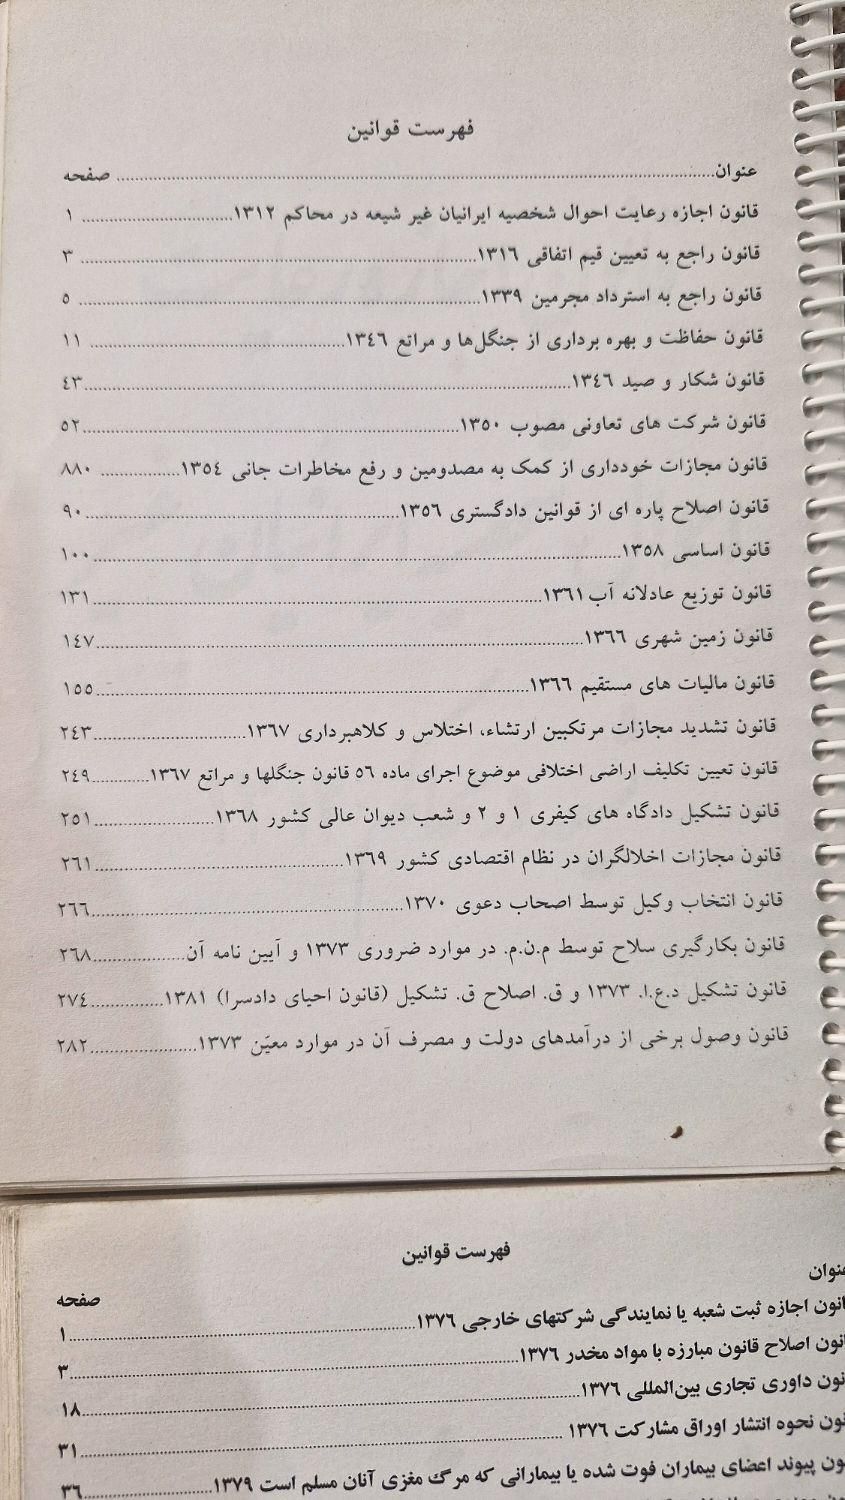 فهرست قوانین
عنوان ........ صفحه
قانون اجازه رعایت احوال شخصیه ایرانیان غیر شیعه در محاکم ۱۳۱۲ ........ ۱
قانون راجع به تعیین قیم اتفاقی ۱۳۱۶ ........ ۳
قانون راجع به استرداد مجرمین ۱۳۳۹ ........ ۵
قانون حفاظت و بهره برداری از جنگل‌ها و مراتع ۱۳٤٦ ........ ۱۱
قانون شکار و صید ۱۳٤٦ ........ ٤۳
قانون شرکت های تعاونی مصوب ۱۳۵۰ ........ ۵۲
قانون مجازات خودداری از کمک به مصدومین و رفع مخاطرات جانی ۱۳۵٤ ........ ۸۸۰
قانون اصلاح پاره ای از قوانین دادگستری ۱۳۵٦ ........ ۹۰
قانون اساسی ۱۳۵۸ ........ ۱۰۰
قانون توزیع عادلانه آب ۱۳٦۱ ........ ۱۳۱
قانون زمین شهری ۱۳٦٦ ........ ۱٤۷
قانون مالیات های مستقیم ۱۳٦٦ ........ ۱۵۵
قانون تشدید مجازات مرتکبین ارتشاء، اختلاس و کلاهبرداری ۱۳٦۷ ........ ۲٤۳
قانون تعیین تکلیف اراضی اختلافی موضوع اجرای ماده ۵٦ قانون جنگلها و مراتع ۱۳٦۷ ........ ۲٤۹
قانون تشکیل دادگاه های کیفری ۱ و ۲ و شعب دیوان عالی کشور ۱۳٦۸ ........ ۲۵۱
قانون مجازات اخلالگران در نظام اقتصادی کشور ۱۳٦۹ ........ ۲٦۱
قانون انتخاب وکیل توسط اصحاب دعوی ۱۳۷۰ ........ ۲٦٦
قانون بکارگیری سلاح توسط م.ن.م. در موارد ضروری ۱۳۷۳ و آیین نامه آن ........ ۲٦۸
قانون تشکیل د.ع.ا. ۱۳۷۳ و ق. اصلاح ق. تشکیل (قانون احیای دادسرا) ۱۳۸۱ ........ ۲۷٤
قانون وصول برخی از درآمدهای دولت و مصرف آن در موارد معیّن ۱۳۷۳ ........ ۲۸۲
فهرست قوانین
عنوان
صفحه
انون اجازه ثبت شعبه یا نمایندگی شرکتهای خارجی ۱۳۷٦ ........ ۱
انون اصلاح قانون مبارزه با مواد مخدر ۱۳۷٦ ........ ۳
نون داوری تجاری بین‌المللی ۱۳۷٦ ........ ۱۸
نون نحوه انتشار اوراق مشارکت ۱۳۷٦ ........ ۳۱
ون پیوند اعضای بیماران فوت شده یا بیمارانی که مرگ مغزی آنان مسلم است ۱۳۷۹ ........ ۳٦